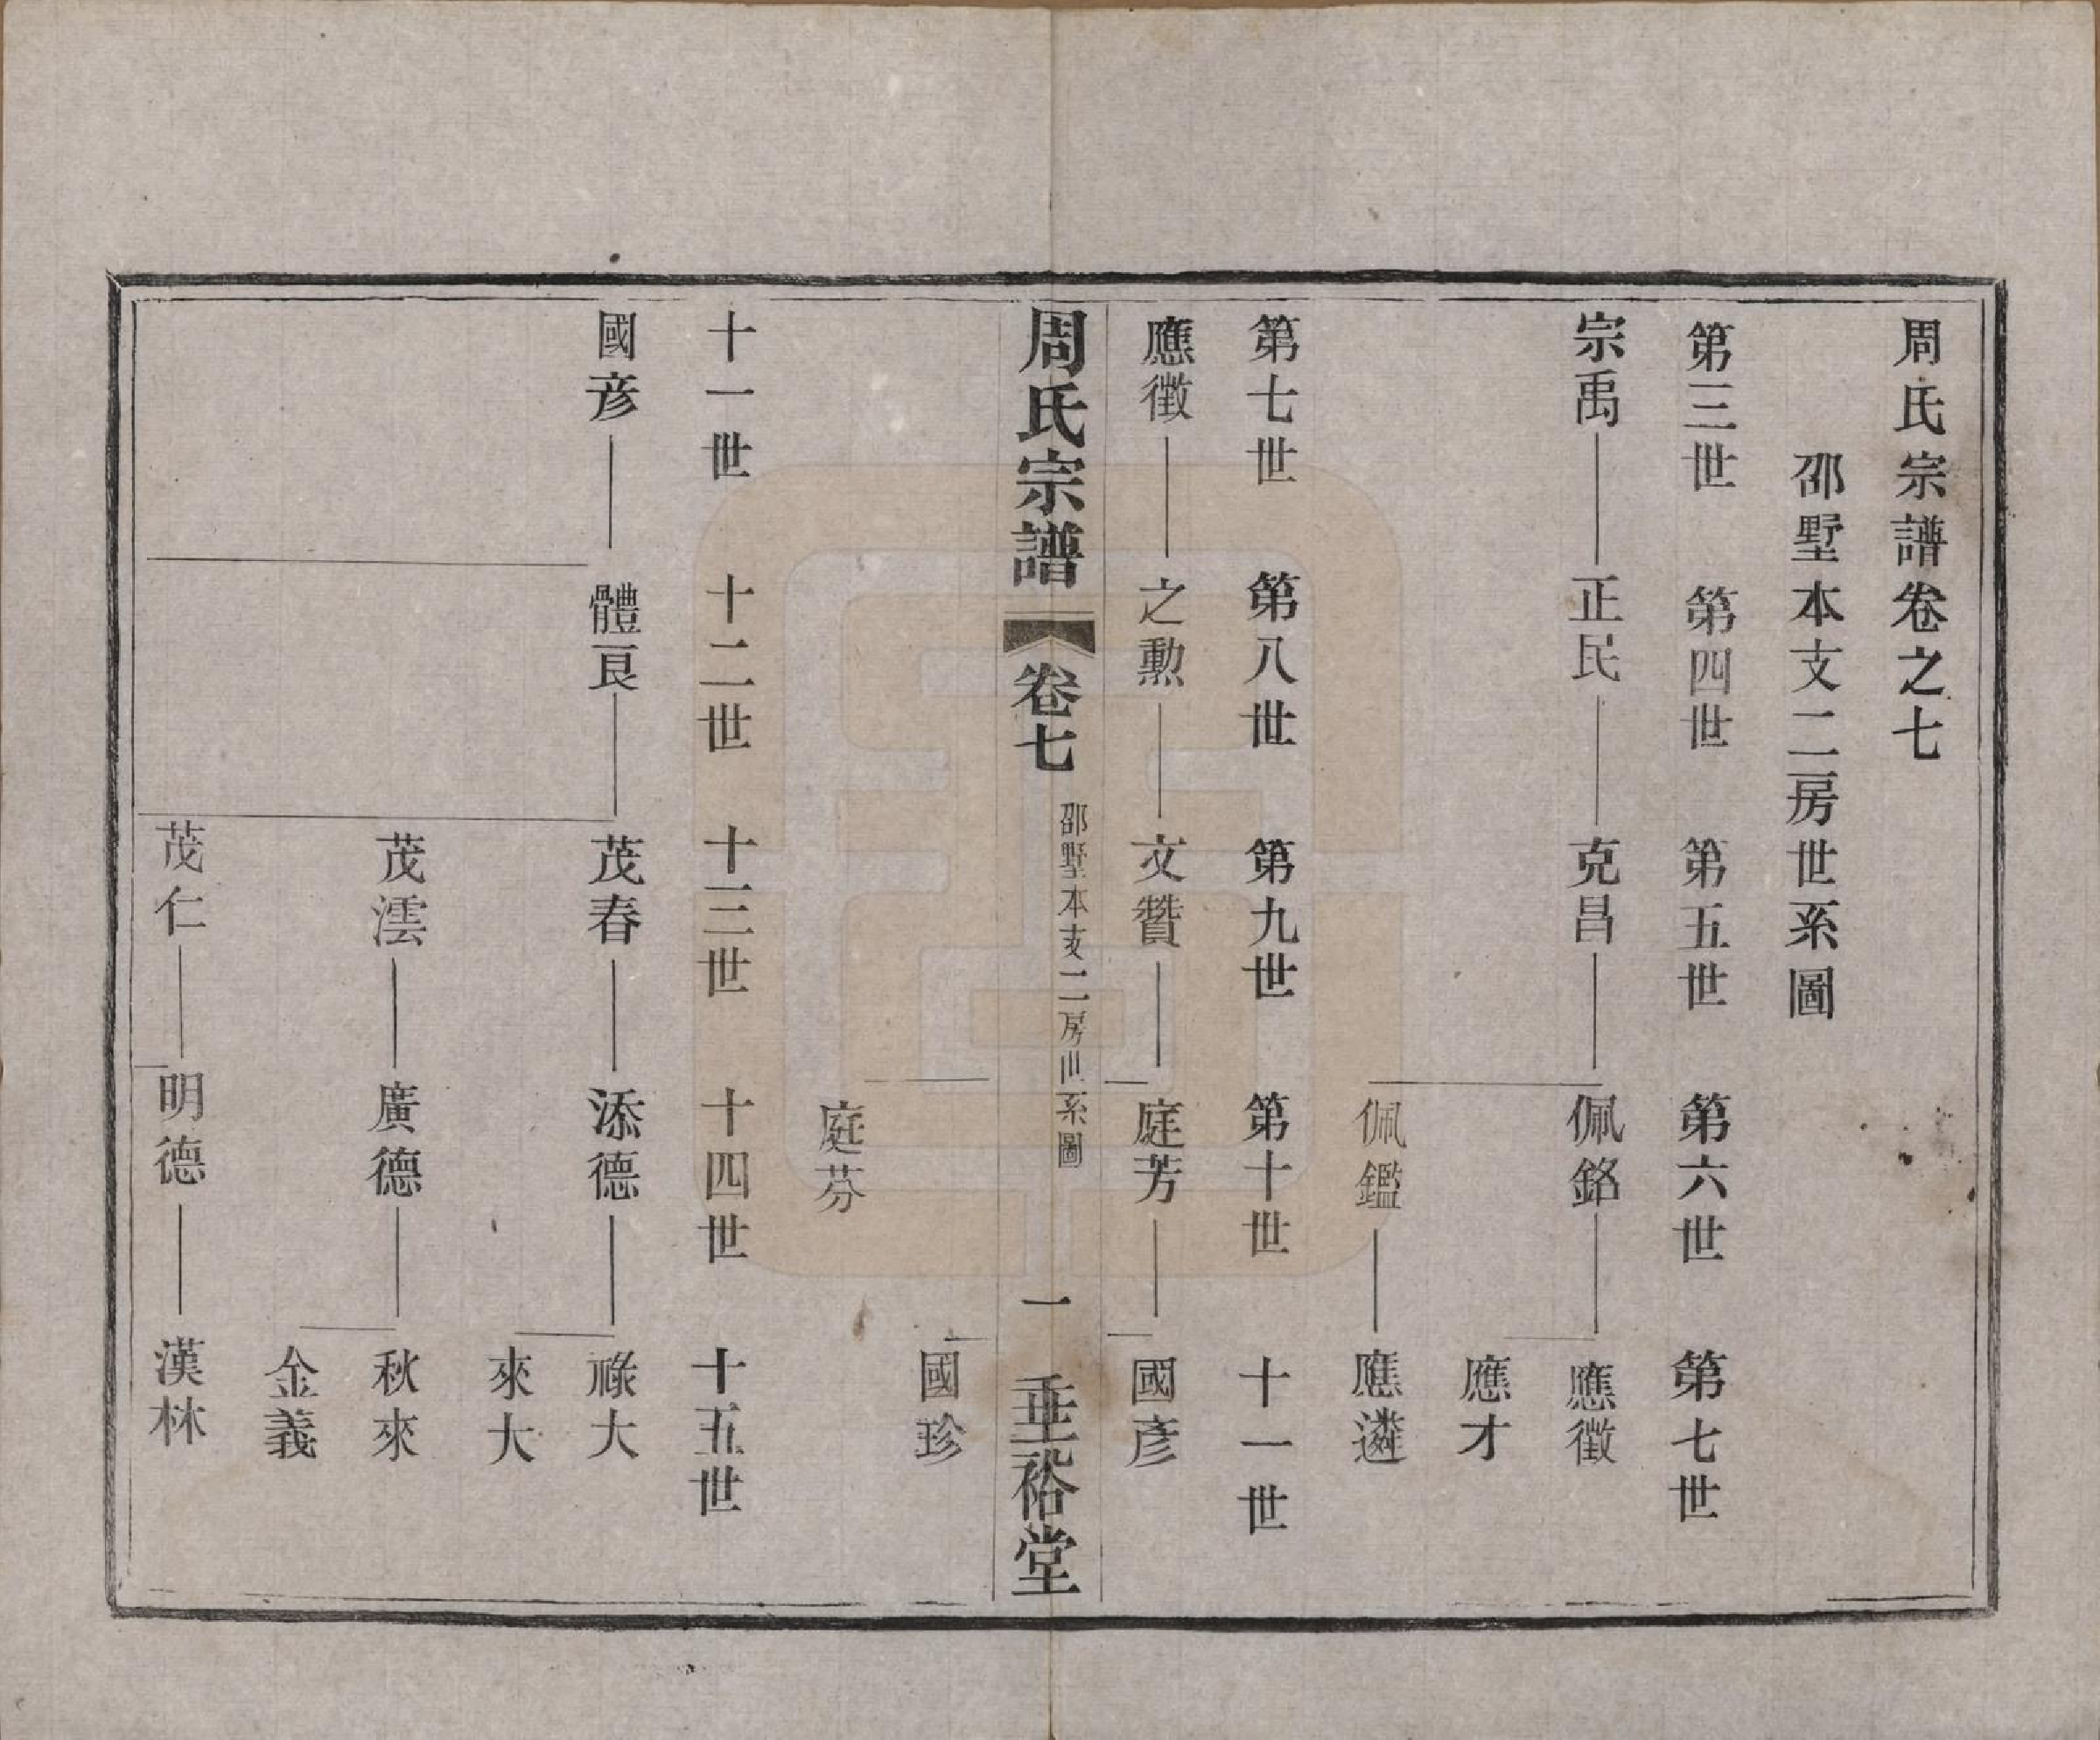 周氏宗譜卷之七
邵墅本支二房世系圖
第三世 第四世 第五世 第六世 第七世
宗禹 正民 克昌 佩銘 應徵
應才
佩鑑 應遴
第七世 第八世 第九世 第十世 十一世
應徵 之勳 文贊 庭芳 國彥
周氏宗譜 卷七 邵墅本支二房世系圖 一 垂裕堂
國珍
庭芬
十一世 十二世 十三世 十四世 十五世
國彦 體良 茂春 添德 祿大
來大
茂澐 廣德 秋來
金義
茂仁 明德 漢林